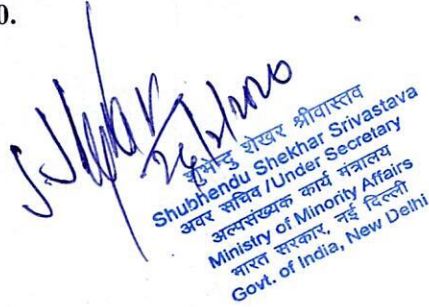 0.
26/2/2020
शुभेन्दु शेखर श्रीवास्तव
Shubhendu Shekhar Srivastava
अवर सचिव / Under Secretary
अल्पसंख्यक कार्य मंत्रालय
Ministry of Minority Affairs
भारत सरकार, नई दिल्ली
Govt. of India, New Delhi